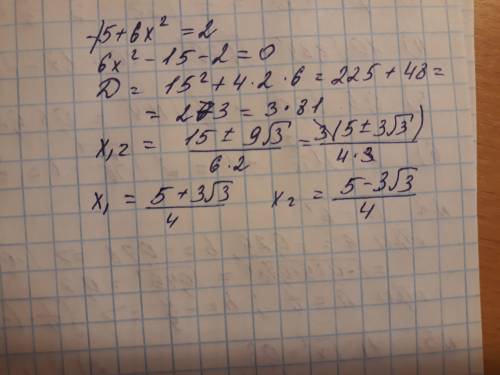 -15+6x² = 2
6x² - 15 - 2 = 0
D = 15² + 4·2·6 = 225 + 48 =
= 273 = 3·81
x₁,₂ = (15 ± 9√3)/(6·2) = 3(5 ± 3√3)/(4·3)
x₁ = (5 + 3√3)/4 x₂ = (5 - 3√3)/4